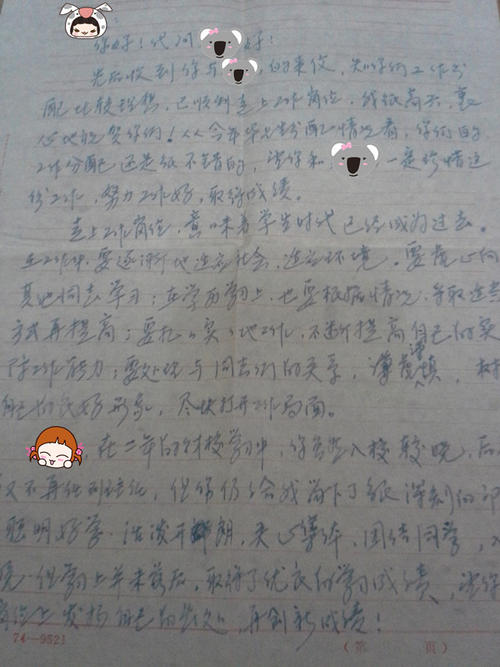 :
你好！代问 好！
先后收到你与 的来信，知你们工作分
配比较理想，已顺利走上工作岗位，我很高兴，衷
心地祝贺你们！从今年毕业分配情况看，你们的
工作分配还是很不错的，望你和 一定珍惜这
份工作，努力工作好，取得成绩。
走上工作岗位，意味着学生时代已经成为过去。
在工作中，要逐渐地适应社会，适应环境。要虚心向
其他同志学习；在学历学习上，也要根据情况，争取进
方式再提高；要扎扎实实地工作，不断提高自己的实
际工作能力；要处理与同志们的关系，谦虚谨慎，树
自己的良好形象，尽快打开工作局面。
在二年的对校学习中，你虽然入校较晚，后
又不再任班，但你仍给我留下了很深刻的印
聪明好学、活泼开朗，关心集体，团结同学，入
晚但学习上并未落后，取得了优良的学习成绩，望你
岗位上发扬自己的长处，再创新成绩！
74—9521
（第 页）